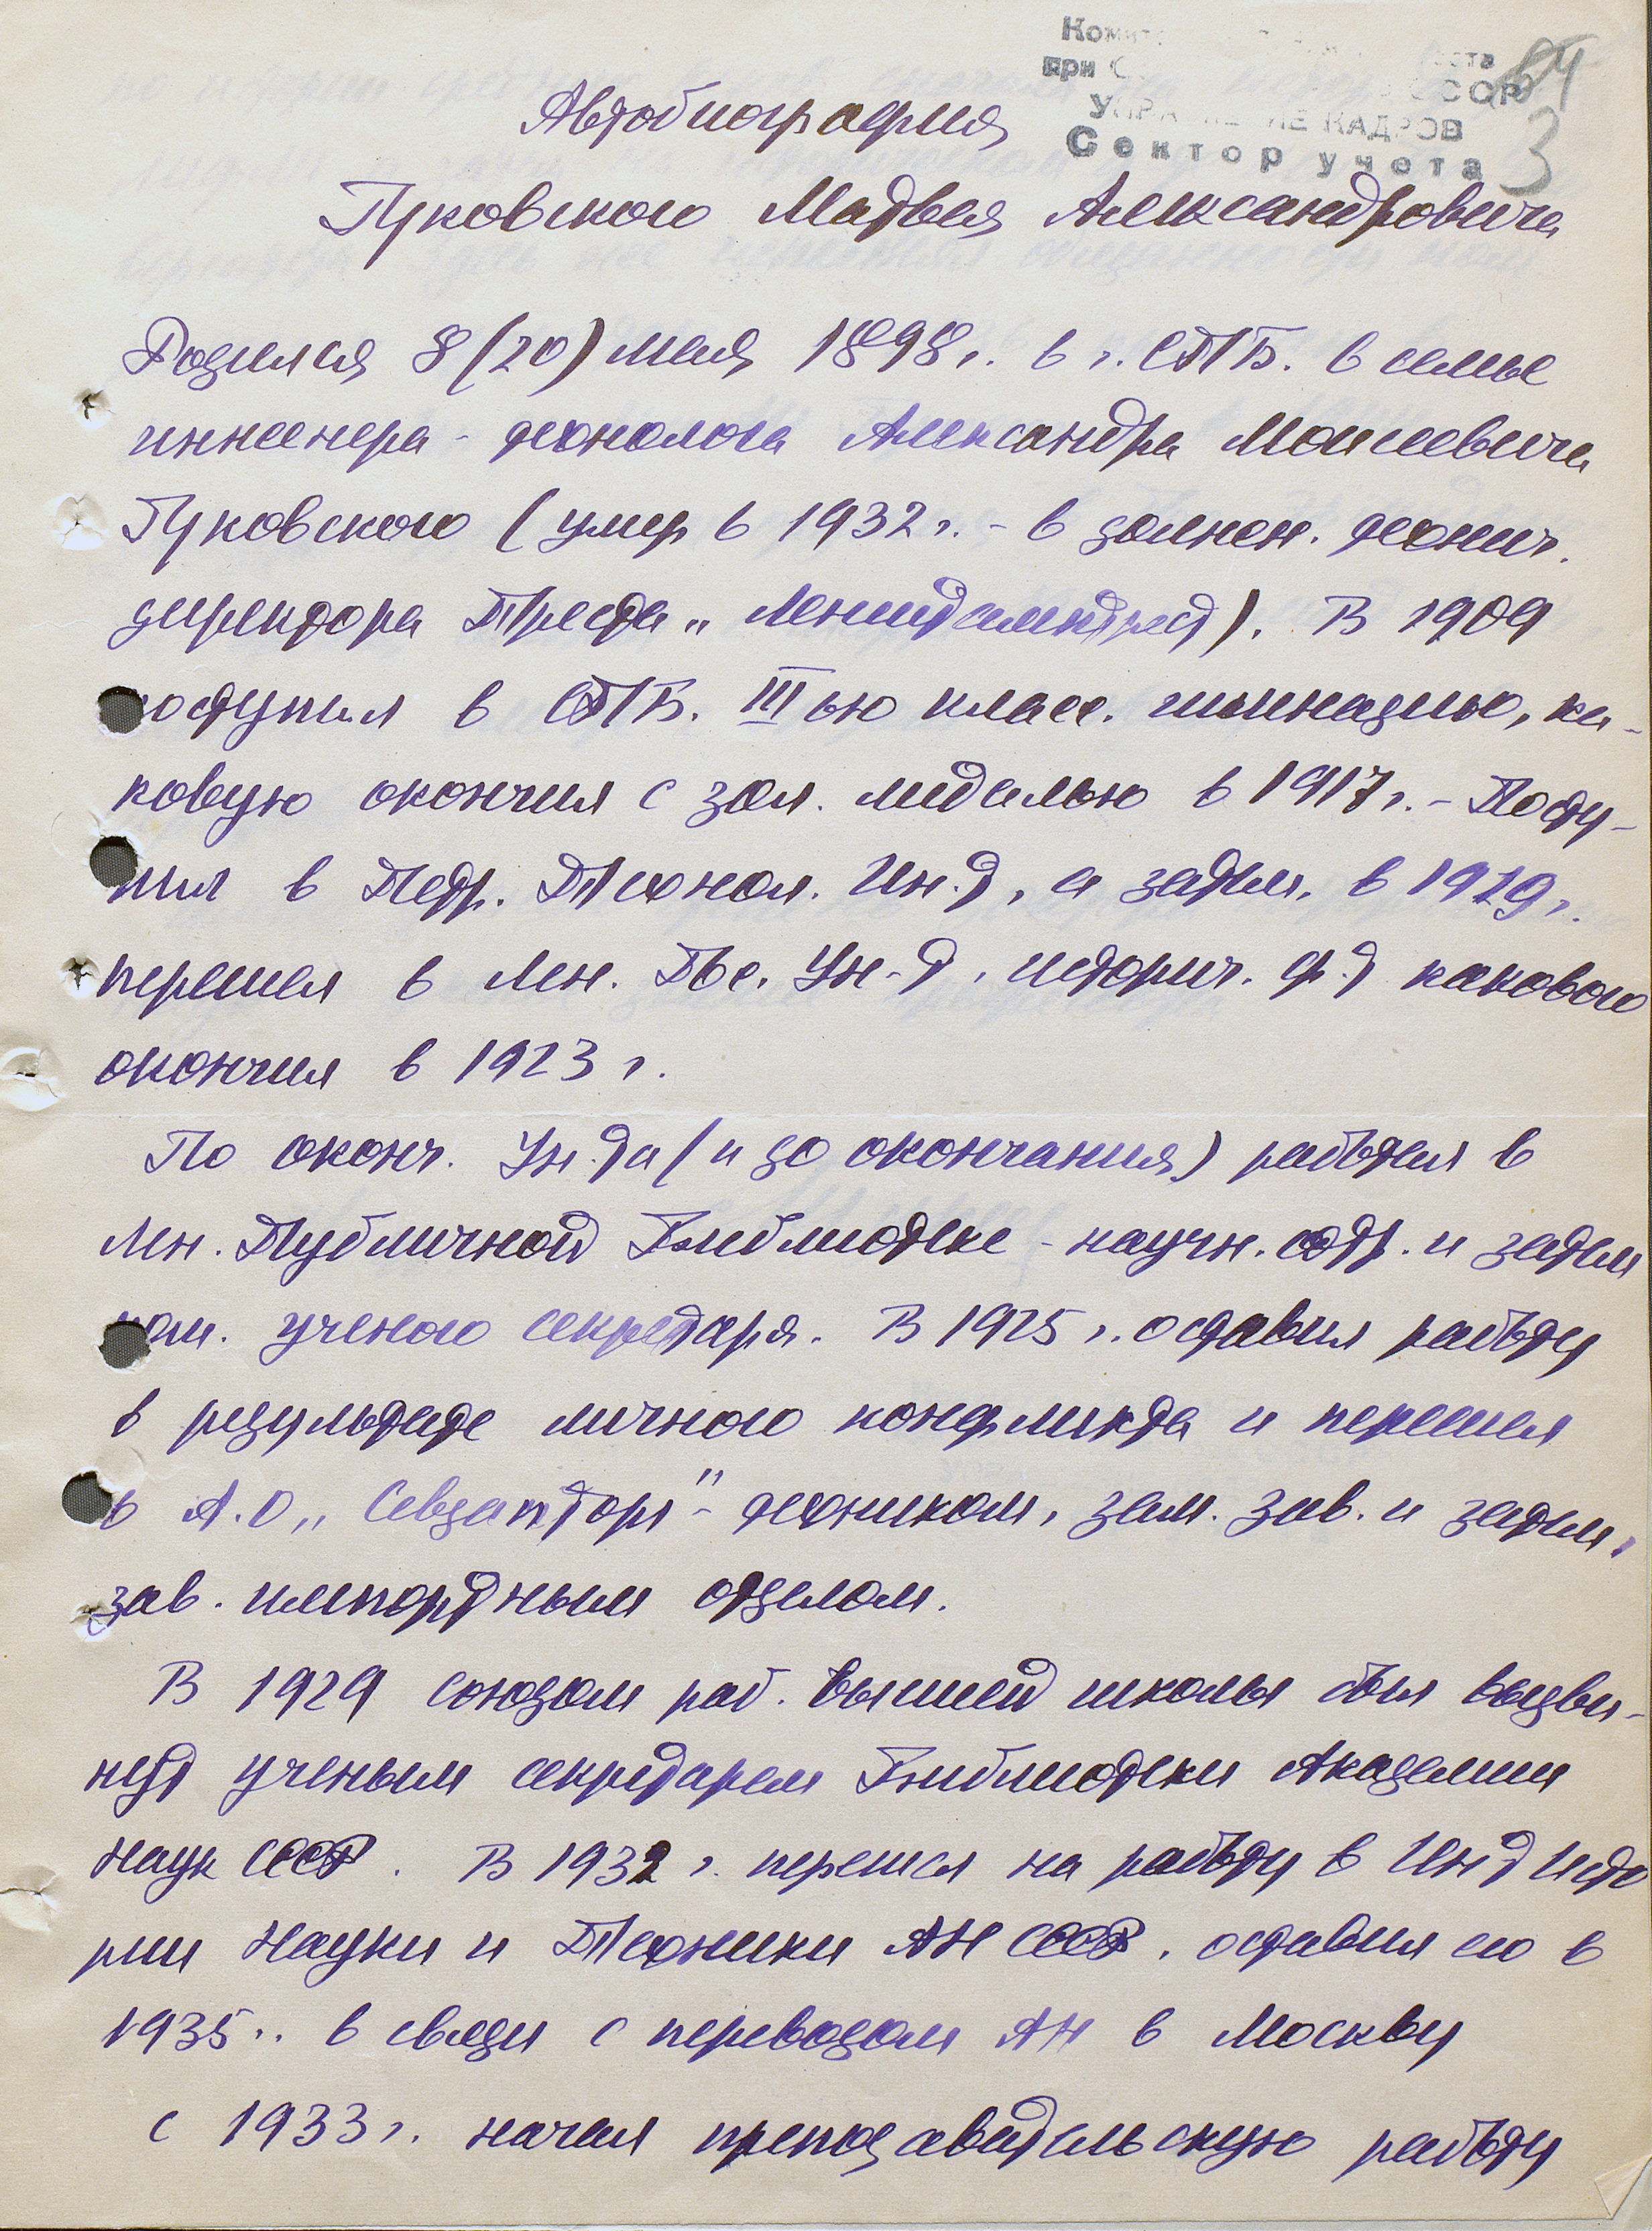 Ком
при С СССР
64
УПРА Е ИЕ КАДРОВ
Сектор учета
3
Автобиография
Гуковского Матвея Александровича
Родился 8 (20) мая 1898 г. в г. СПБ. в семье
инженера-технолога Александра Моисеевича
Гуковского (умер в 1932 г. - в должн. технич.
директора Треста „Лениттрест). В 1909
поступил в СПБ. IIIью класс. гимназию, ка-
ковую окончил с зол. медалью в 1917 г. - Посту-
пил в Петр. Технол. Ин.т, а затем, в 1919 г.
перешел в Лен. Гос. Ун-т, историч. ф.т какового
окончил в 1923 г.
По оконч. Ун.та (и до окончания) работал в
Лен. Публичной Библиотеке - научн. сотр. и затем
пом. ученого секретаря. В 1925 г. оставил работу
в результате личного конфликта и перешел
в А.О „Севзапторг" - техником, зам. зав. и затем,
зав. импортным отделом.
В 1929 союзом раб. высшей школы был выдви-
нут ученым секретарем Библиотеки Академии
Наук СССР. В 1932 г. перешел на работу в Инт Исто
рии Науки и Техники АН СССР, оставил ею в
1935.. в связи с переводом АН в Москву
с 1933 г. начал преподавательскую работу